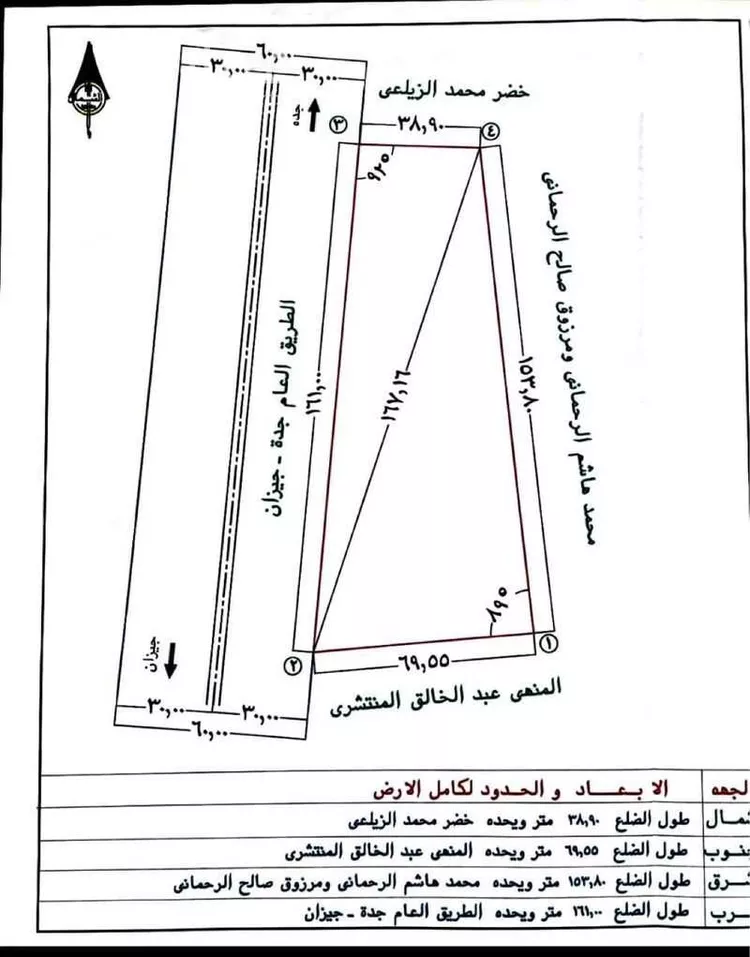 ٦٠,٠٠
٣٠,٠٠
٣٠,٠٠
جده
خضر محمد الزيلعى
٣
٣٨,٩٠
٤
٩٢٥
محمد هاشم الرحمانى ومرزوق صالح الرحمانى
الطريق العام جدة - جيزان
١٦١,٠٠
١٦٧,١٦
١٥٣,٨٠
٨٩٥
جيزان
٢
٦٩,٥٥
١
٣٠,٠٠
٣٠,٠٠
٦٠,٠٠
المنهى عبد الخالق المنتشرى
لجهه الابعاد و الحدود لكامل الارض
مال طول الضلع ٣٨,٩٠ متر ويحده خضر محمد الزيلعى
نوب طول الضلع ٦٩,٥٥ متر ويحده المنهى عبد الخالق المنتشرى
شرق طول الضلع ١٥٣,٨٠ متر ويحده محمد هاشم الرحمانى ومرزوق صالح الرحمانى
رب طول الضلع ١٦١,٠٠ متر ويحده الطريق العام جدة - جيزان